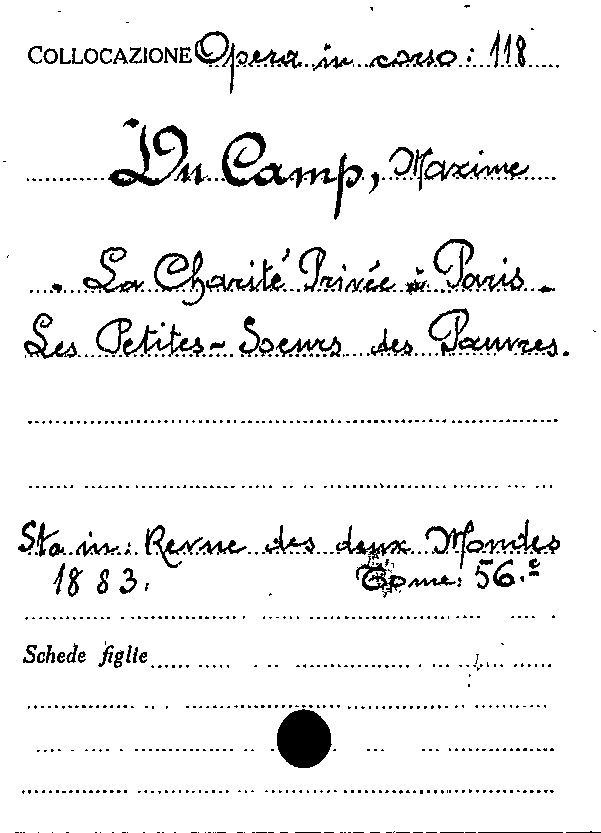 COLLOCAZIONE Opera in corso: 118
Du Camp, Maxime
. La Charité Privée à Paris -
Les Petites-Soeurs des Pauvres.
Sta in: Revue des deux Mondes
1883. Tome: 56.e
Schede figlie